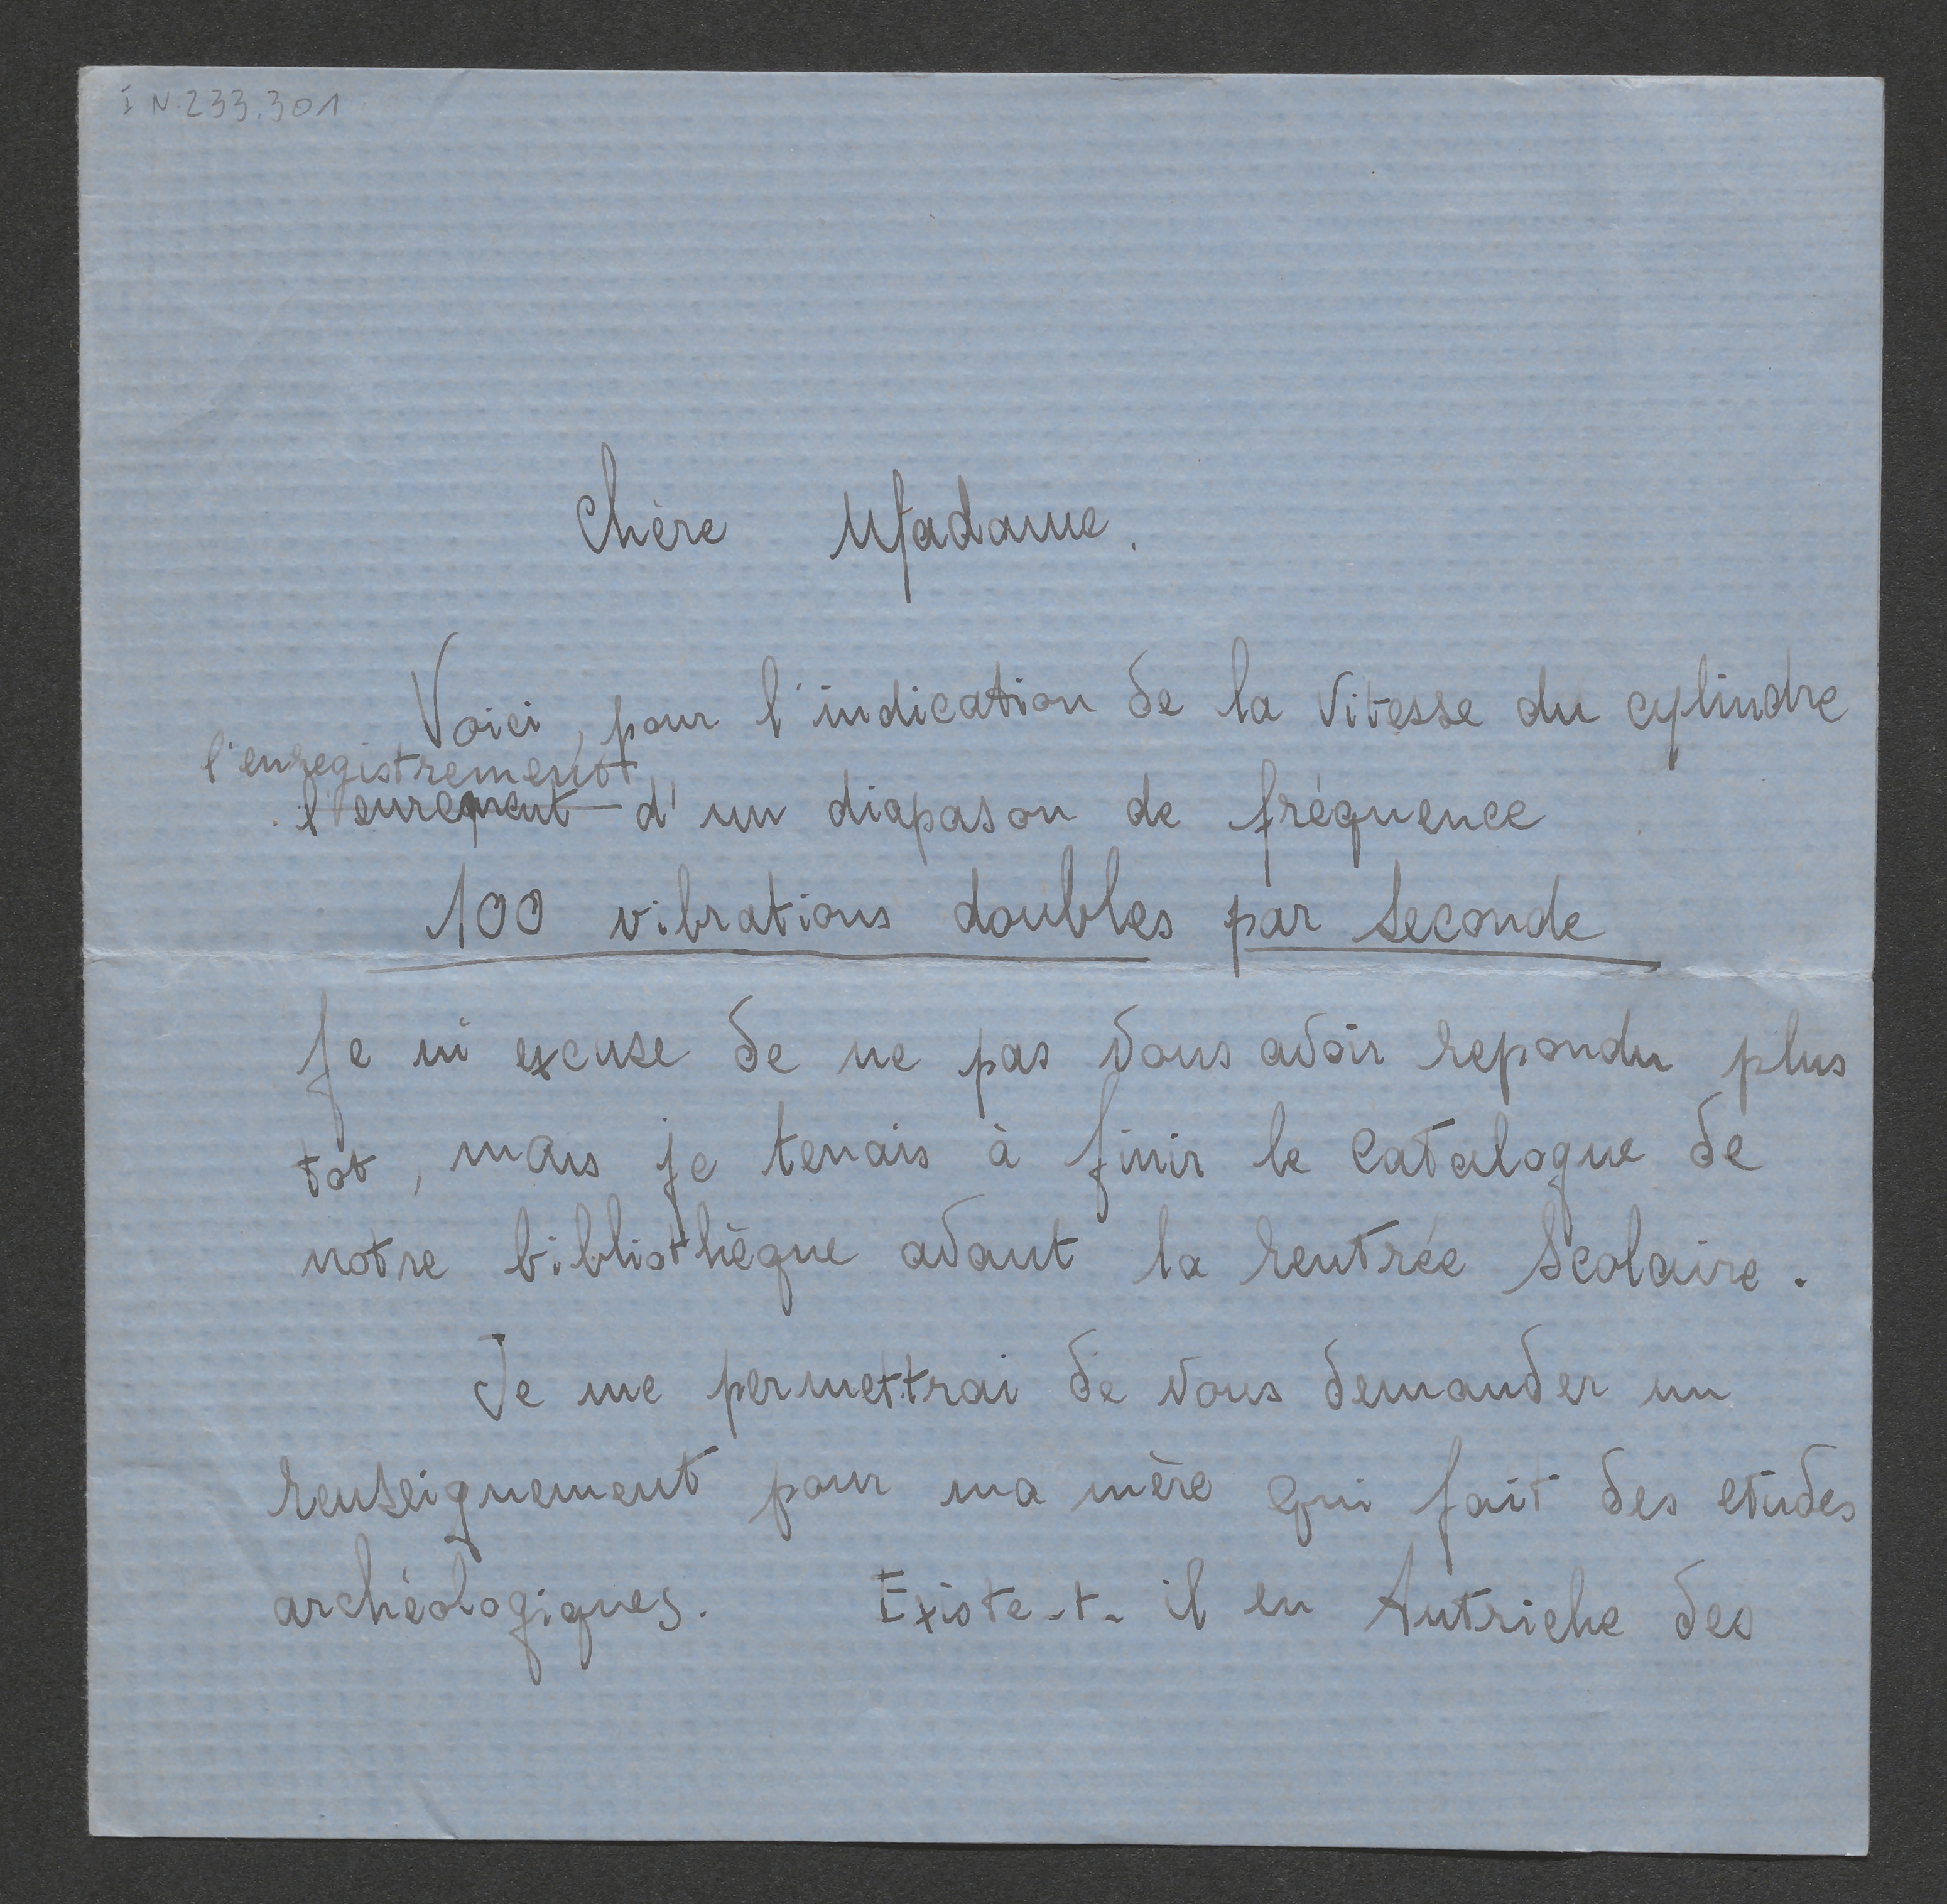 I N.233.301
Chère Madame.
Voici, pour l'indication de la vitesse du cylindre
l'enregistrement
d'un diapason de fréquence
100 vibrations doubles par seconde
Je m'excuse de ne pas vous avoir repondu plus
tot, mais je tenais à finir le catalogue de
notre bibliothèque avant la rentrée scolaire.
Je me permettrai de vous demander un
renseignement pour ma mère qui fait des etudes
archéologiques. Existe-t-il en Autriche des